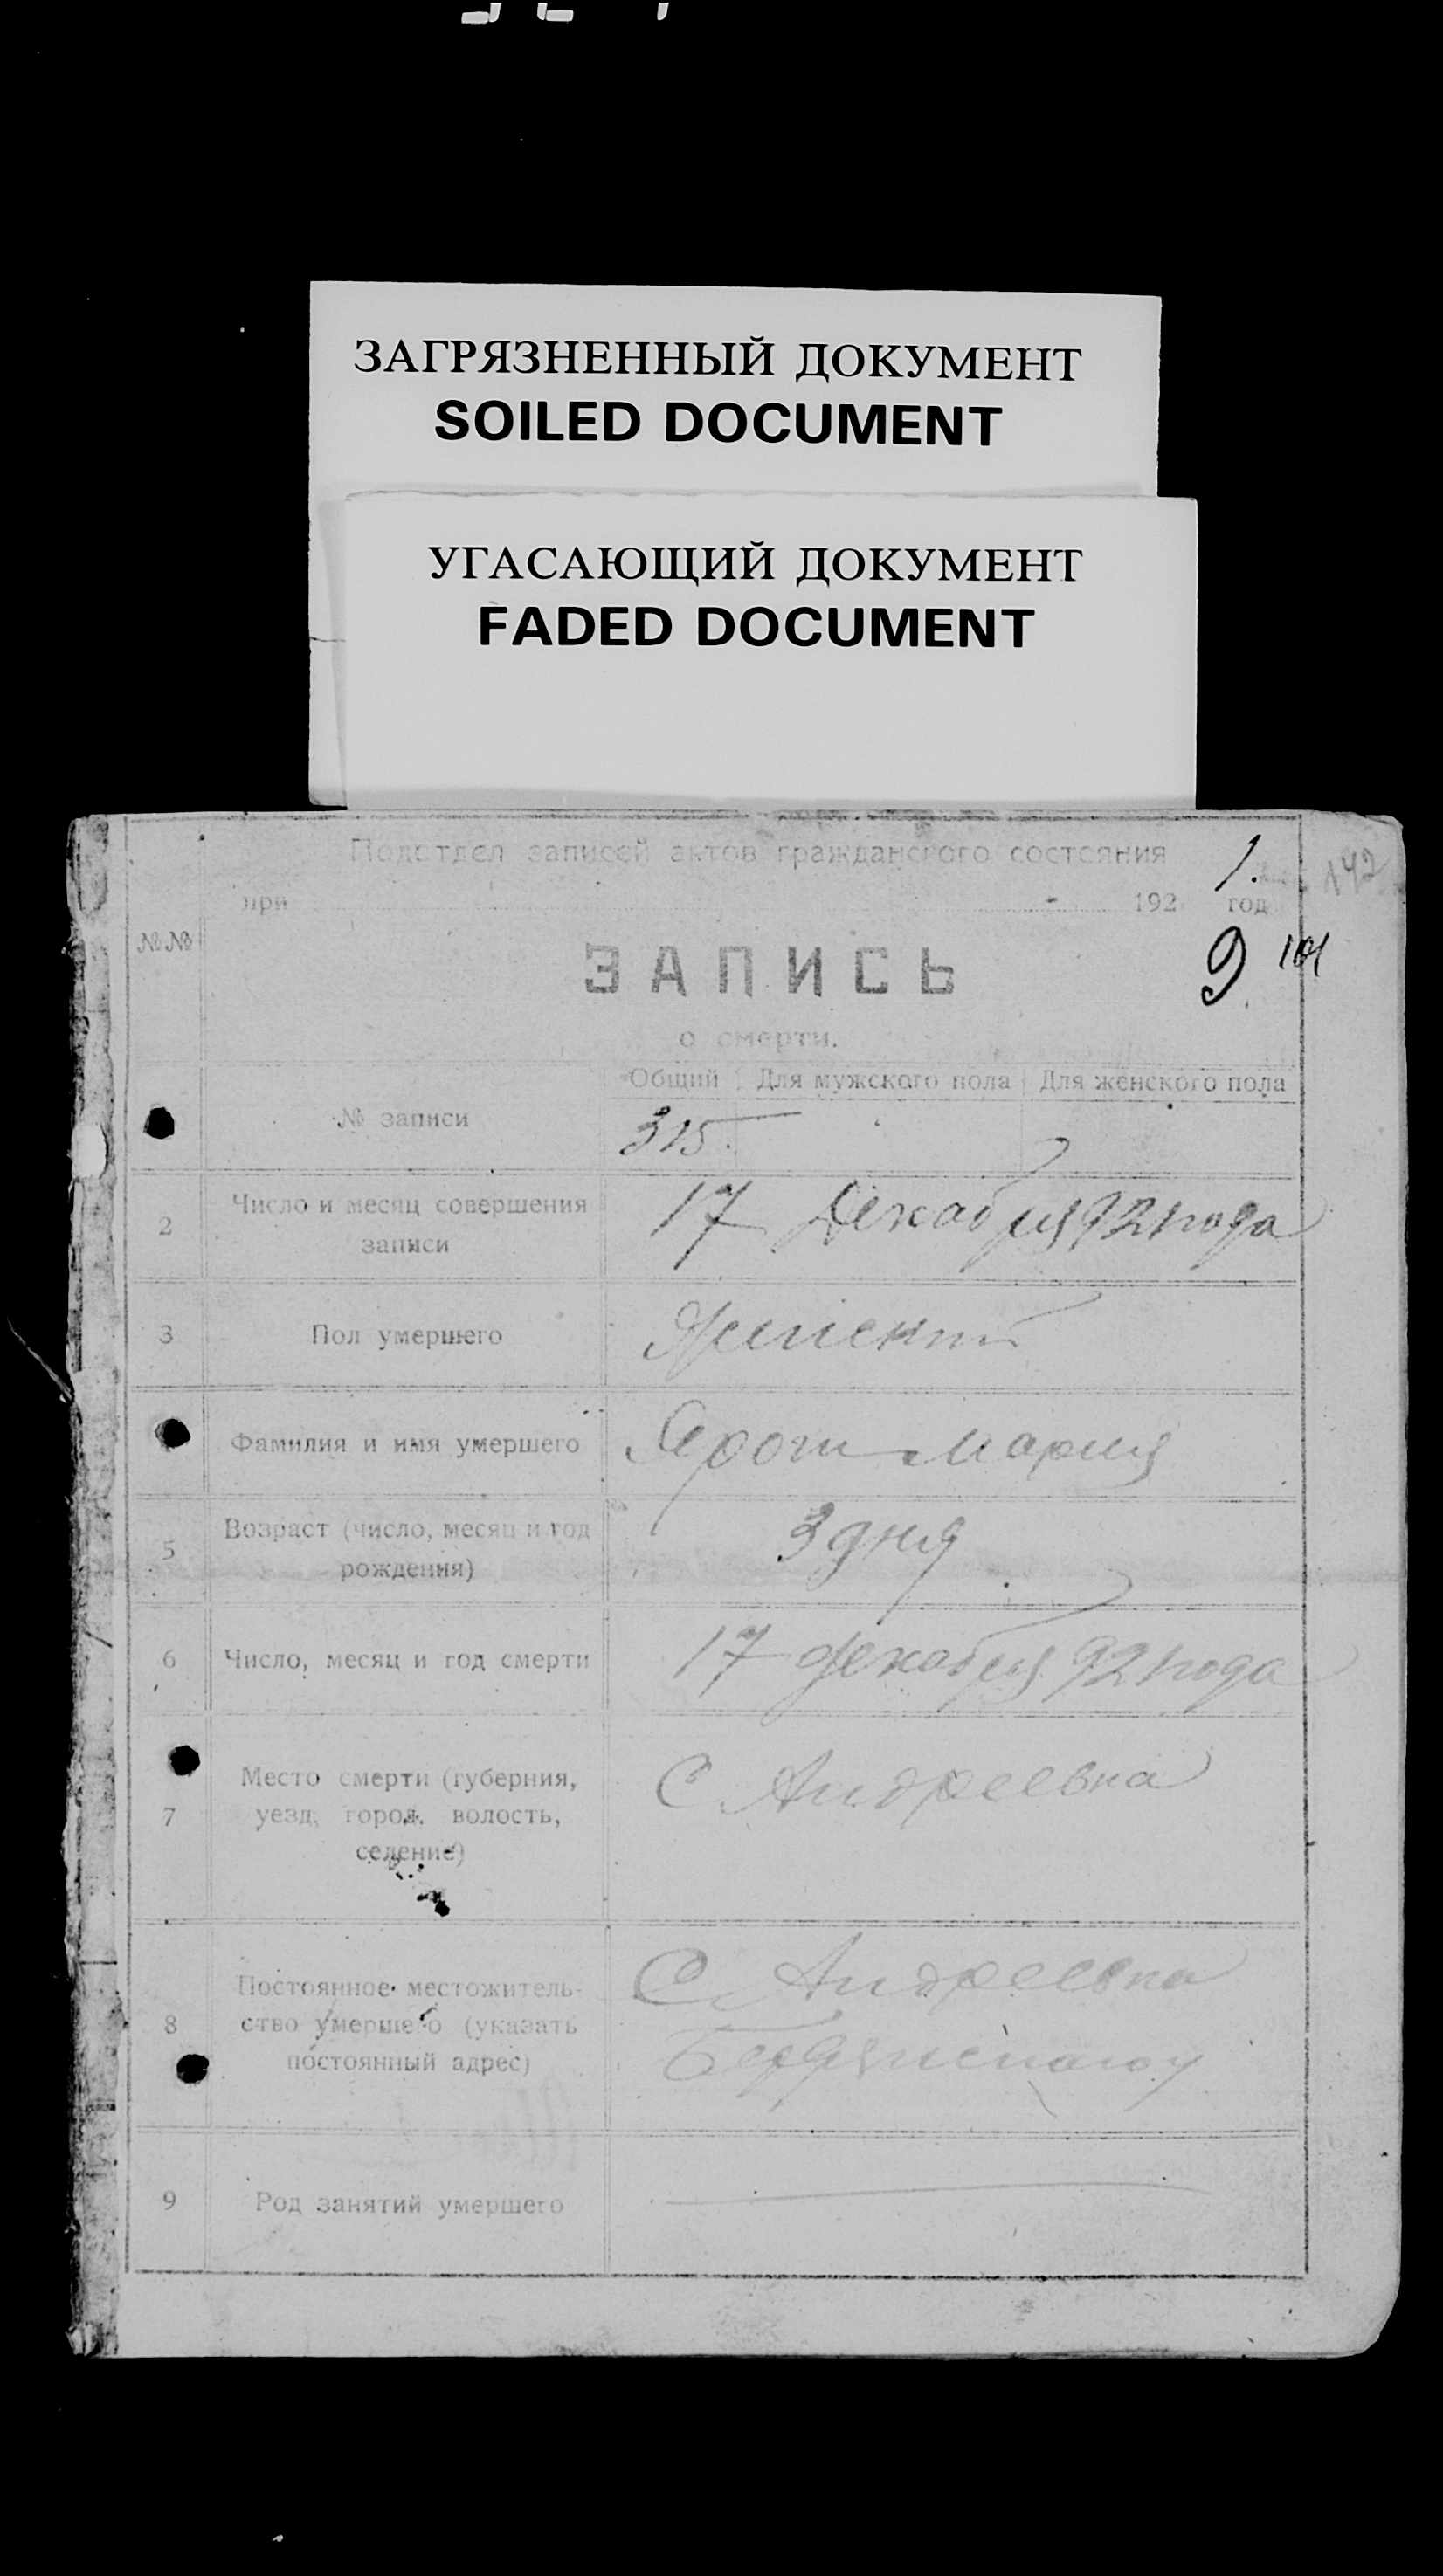 ЗАГРЯЗНЕННЫЙ ДОКУМЕНТ
SOILED DOCUMENT
УГАСАЮЩИЙ ДОКУМЕНТ
FADED DOCUMENT
Подотдел записей актов гражданского состояния
при 192 1. год
142
№№
ЗАПИСЬ
9 101
о смерти.
Общий Для мужского пола Для женского пола
№ записи 315.
2 Число и месяц совершения
записи
17 Декабря 921 года
3 Пол умершего Женский
Фамилия и имя умершего Ярош Мария
5 Возраст (число, месяц и год
рождения)
3 дня
6 Число, месяц и год смерти 17 декабря 921 года
7 Место смерти (губерния,
уезд, город, волость,
селение)
С Андреевка
8 Постоянное местожитель-
ство умершего (указать
постоянный адрес)
С Андреевка
9 Род занятий умершего